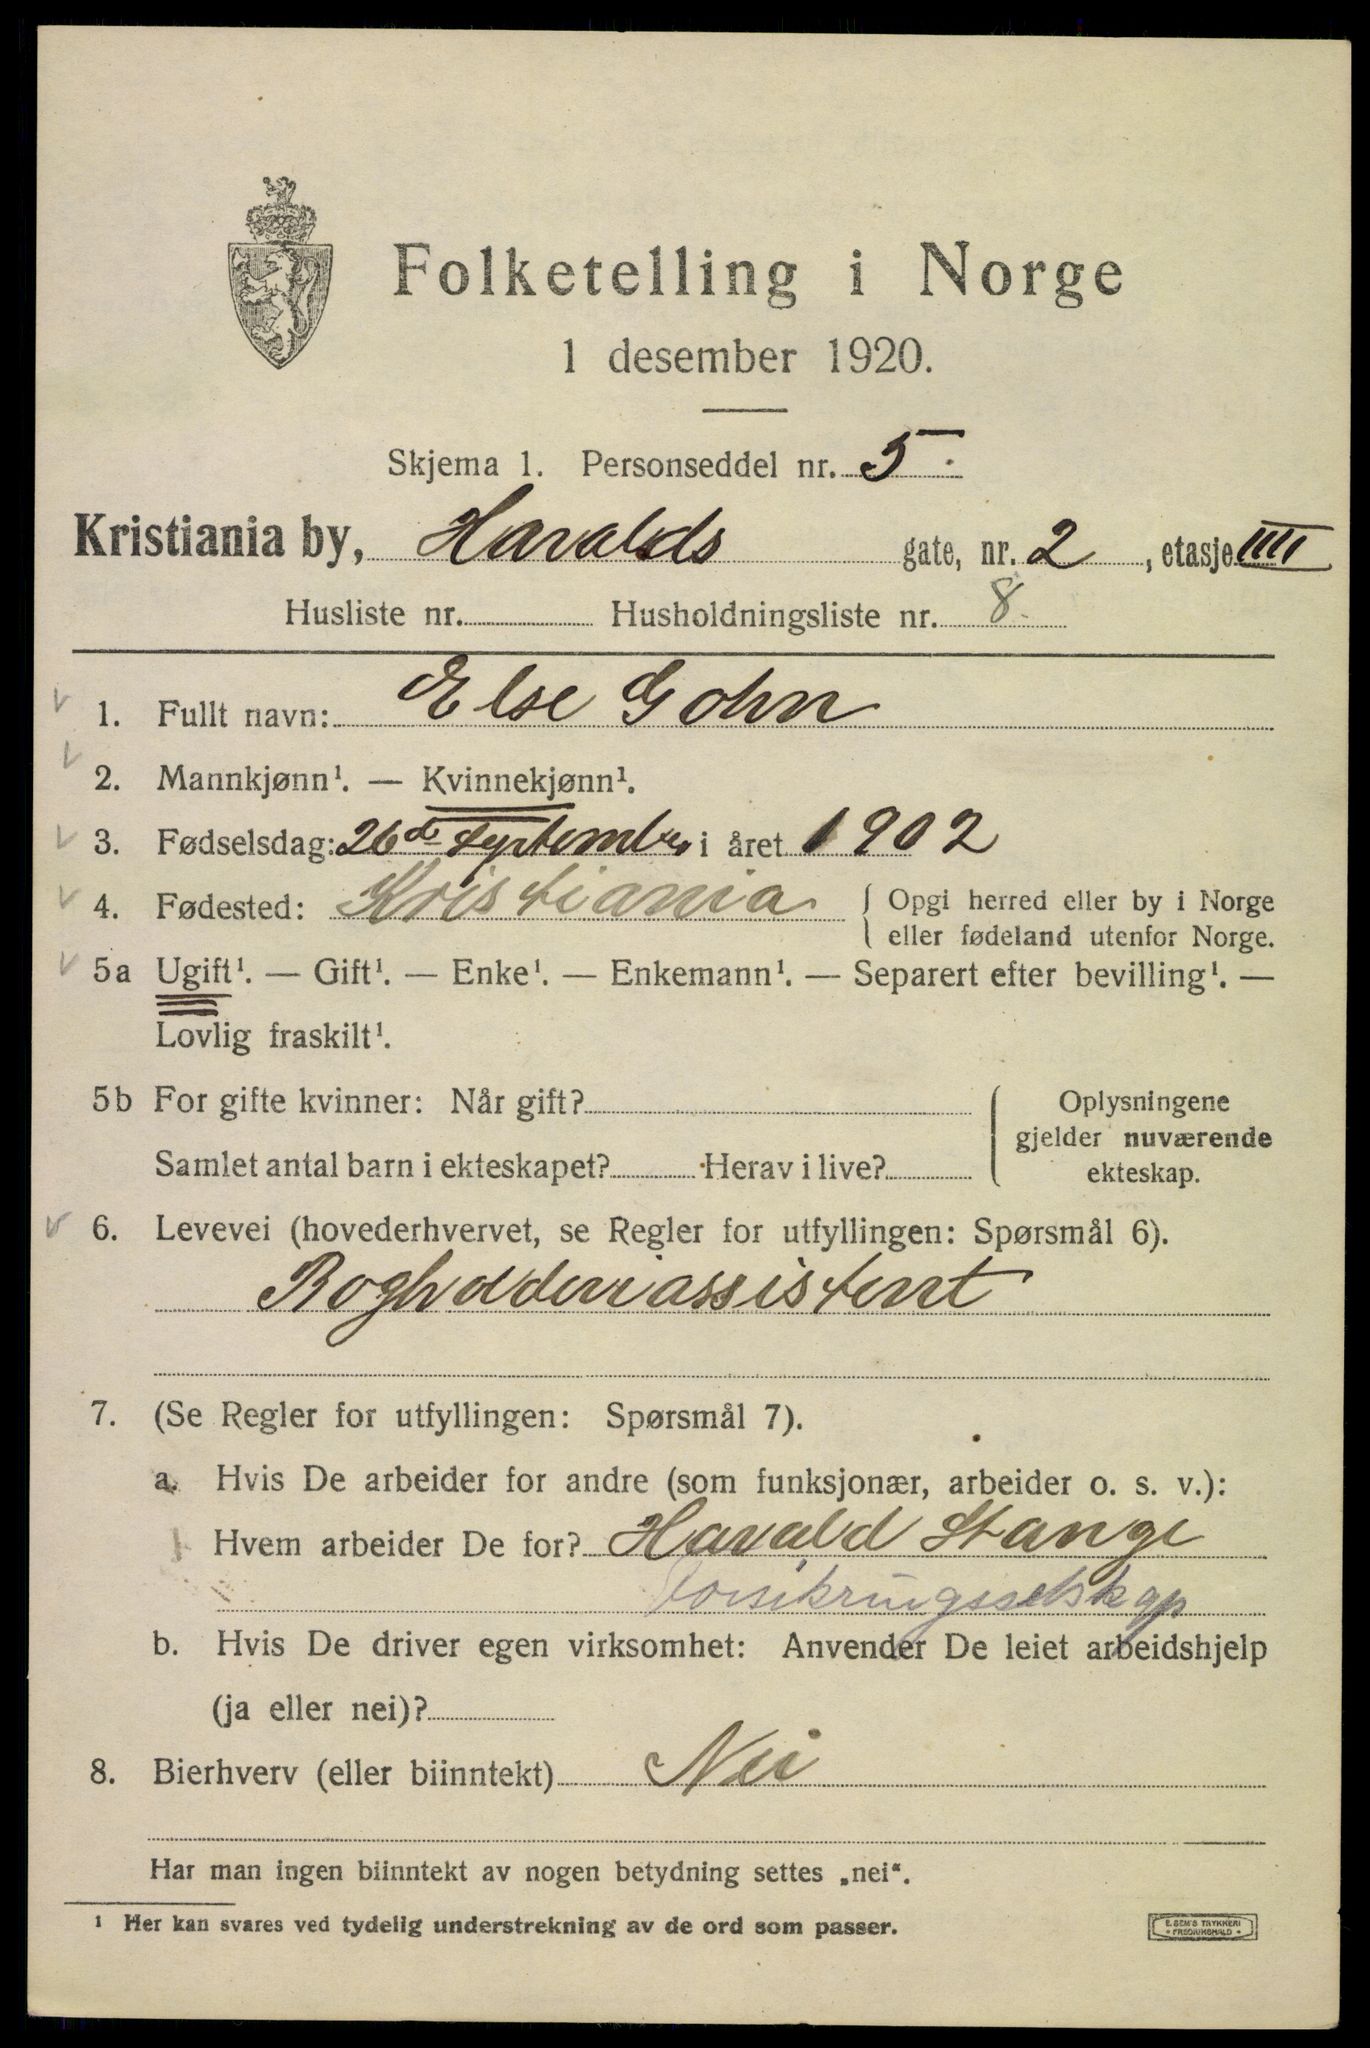 Folketelling i Norge
1 desember 1920.
Skjema 1. Personseddel nr. 5.
Kristiania by, Haralds gate, nr. 2, etasje IIII
Husliste nr. Husholdningsliste nr. 8.
1. Fullt navn: Else Gohn
2. Mannkjønn¹. — Kvinnekjønn¹.
3. Fødselsdag: 26de september i året 1902
4. Fødested: Kristiania { Opgi herred eller by i Norge
eller fødeland utenfor Norge.
5a Ugift¹. — Gift¹. — Enke¹. — Enkemann¹. — Separert efter bevilling¹. —
Lovlig fraskilt¹.
5b For gifte kvinner: Når gift?
Samlet antal barn i ekteskapet? Herav i live?
Oplysningene
gjelder nuværende
ekteskap.
6. Levevei (hovederhvervet, se Regler for utfyllingen: Spørsmål 6).
Bogholderiassistent
7. (Se Regler for utfyllingen: Spørsmål 7).
a. Hvis De arbeider for andre (som funksjonær, arbeider o. s. v.):
Hvem arbeider De for? Harald Stange
Forsikringsselskap
b. Hvis De driver egen virksomhet: Anvender De leiet arbeidshjelp
(ja eller nei)?
8. Bierhverv (eller biinntekt) Nei
Har man ingen biinntekt av nogen betydning settes „nei“.
¹ Her kan svares ved tydelig understrekning av de ord som passer.
E. SEM'S TRYKKERI
FREDRIKSHALD